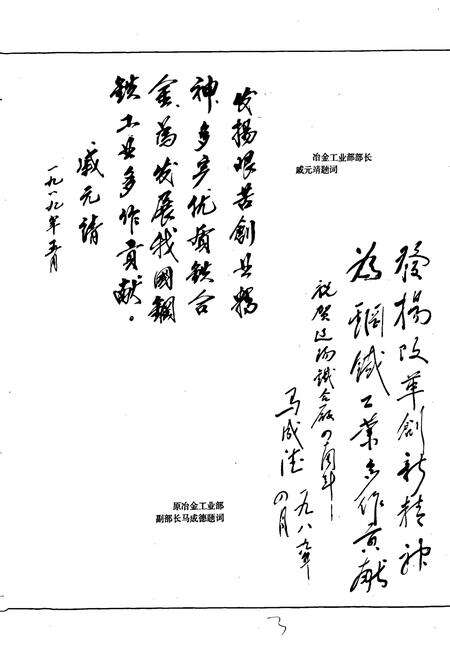 冶金工业部部长
戚元靖题词
发揚艰苦創业精
神,多产优质鉄合
金,為发展我國鋼
鉄工业多作貢献。
戚元靖
一九八九年五月
發揚改革創新精神
为鋼鐵工業多作貢献
祝贺辽阳鐵合厰四十周年!
马成德
一九八九年
四月
原冶金工业部
副部长马成德题词
3